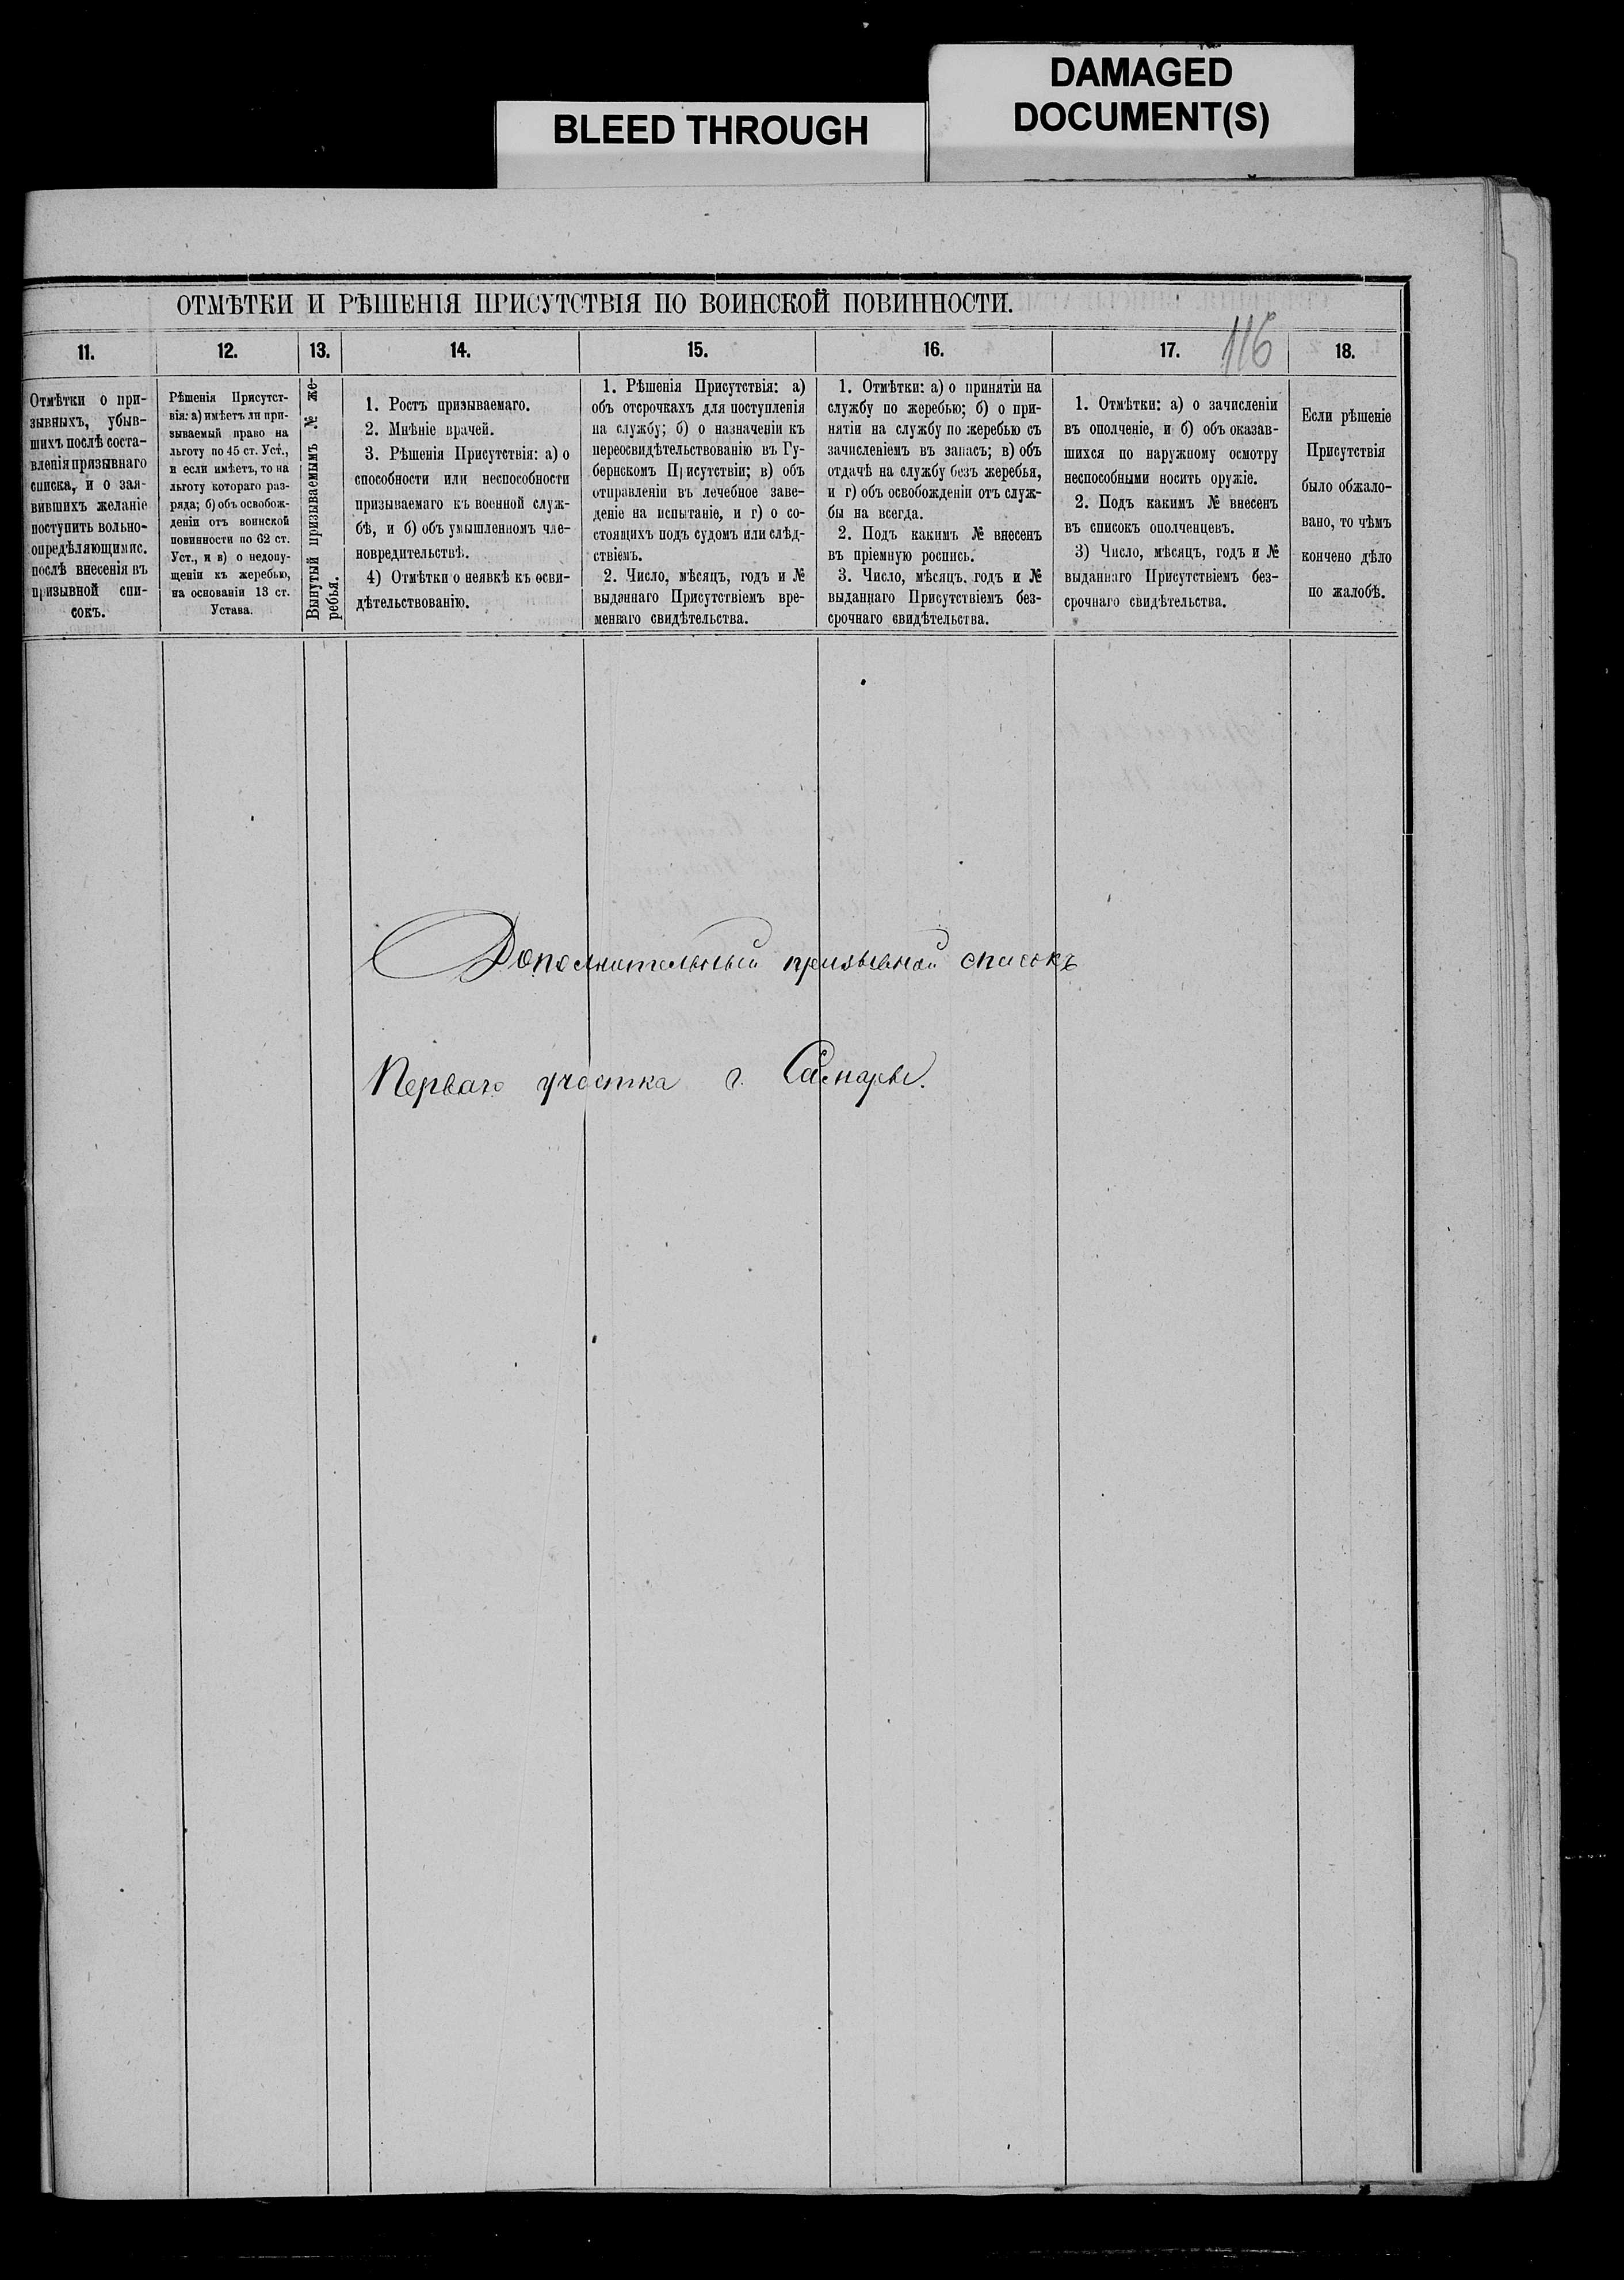 DAMAGED
DOCUMENT(S)
BLEED THROUGH
ОТМѢТКИ И РѢШЕНІЯ ПРИСУТСТВІЯ ПО ВОИНСКОЙ ПОВИННОСТИ.
116
11.
12.
13.
14.
15.
16.
17.
18.
Отмѣтки о при-
зывныхъ, убыв-
шихъ послѣ соста-
вленія призывнаго
списка, и о зая-
вившихъ желаніе
поступить вольно-
опредѣляющимис.
послѣ внесенія въ
призывной спи-
сокъ.
Рѣшенія Присутст-
вія: а) имѣетъ ли при-
зываемый право на
льготу по 45 ст. Уст.,
и если имѣетъ, то на
льготу котораго раз-
ряда; б) объ освобож-
деніи отъ воинской
повинности по 62 ст.
Уст., и в) о недопу-
щеніи къ жеребью,
на основаніи 13 ст.
Устава.
Вынутый призываемымъ № же-
ребья.
1. Ростъ призываемаго.
2. Мнѣніе врачей.
3. Рѣшенія Присутствія: а) о
способности или неспособности
призываемаго къ военной служ-
бѣ, и б) объ умышленномъ чле-
новредительствѣ.
4) Отмѣтки о неявкѣ къ осви-
дѣтельствованію.
1. Рѣшенія Присутствія: а)
объ отсрочкахъ для поступленія
на службу; б) о назначеніи къ
переосвидѣтельствованію въ Гу-
бернскомъ Присутствіи; в) объ
отправленіи въ лечебное заве-
деніе на испытаніе, и г) о со-
стоящихъ подъ судомъ или слѣд-
ствіемъ.
2. Число, мѣсяцъ, годъ и №
выданнаго Присутствіемъ вре-
меннаго свидѣтельства.
1. Отмѣтки: а) о принятіи на
службу по жеребью; б) о при-
нятіи на службу по жеребью съ
зачисленіемъ въ запасъ; в) объ
отдачѣ на службу безъ жеребья,
и г) объ освобожденіи отъ служ-
бы на всегда.
2. Подъ какимъ № внесенъ
въ пріемную роспись.
3. Число, мѣсяцъ, годъ и №
выданнаго Присутствіемъ без-
срочнаго свидѣтельства.
1. Отмѣтки: а) о зачисленіи
въ ополченіе, и б) объ оказав-
шихся по наружному осмотру
неспособными носить оружіе.
2. Подъ какимъ № внесенъ
въ списокъ ополченцевъ.
3) Число, мѣсяцъ, годъ и №
выданнаго Присутствіемъ без-
срочнаго свидѣтельства.
Если рѣшеніе
Присутствія
было обжало-
вано, то чѣмъ
кончено дѣло
по жалобѣ.
Дополнительный призывной списокъ
Перваго участка г. Самары.